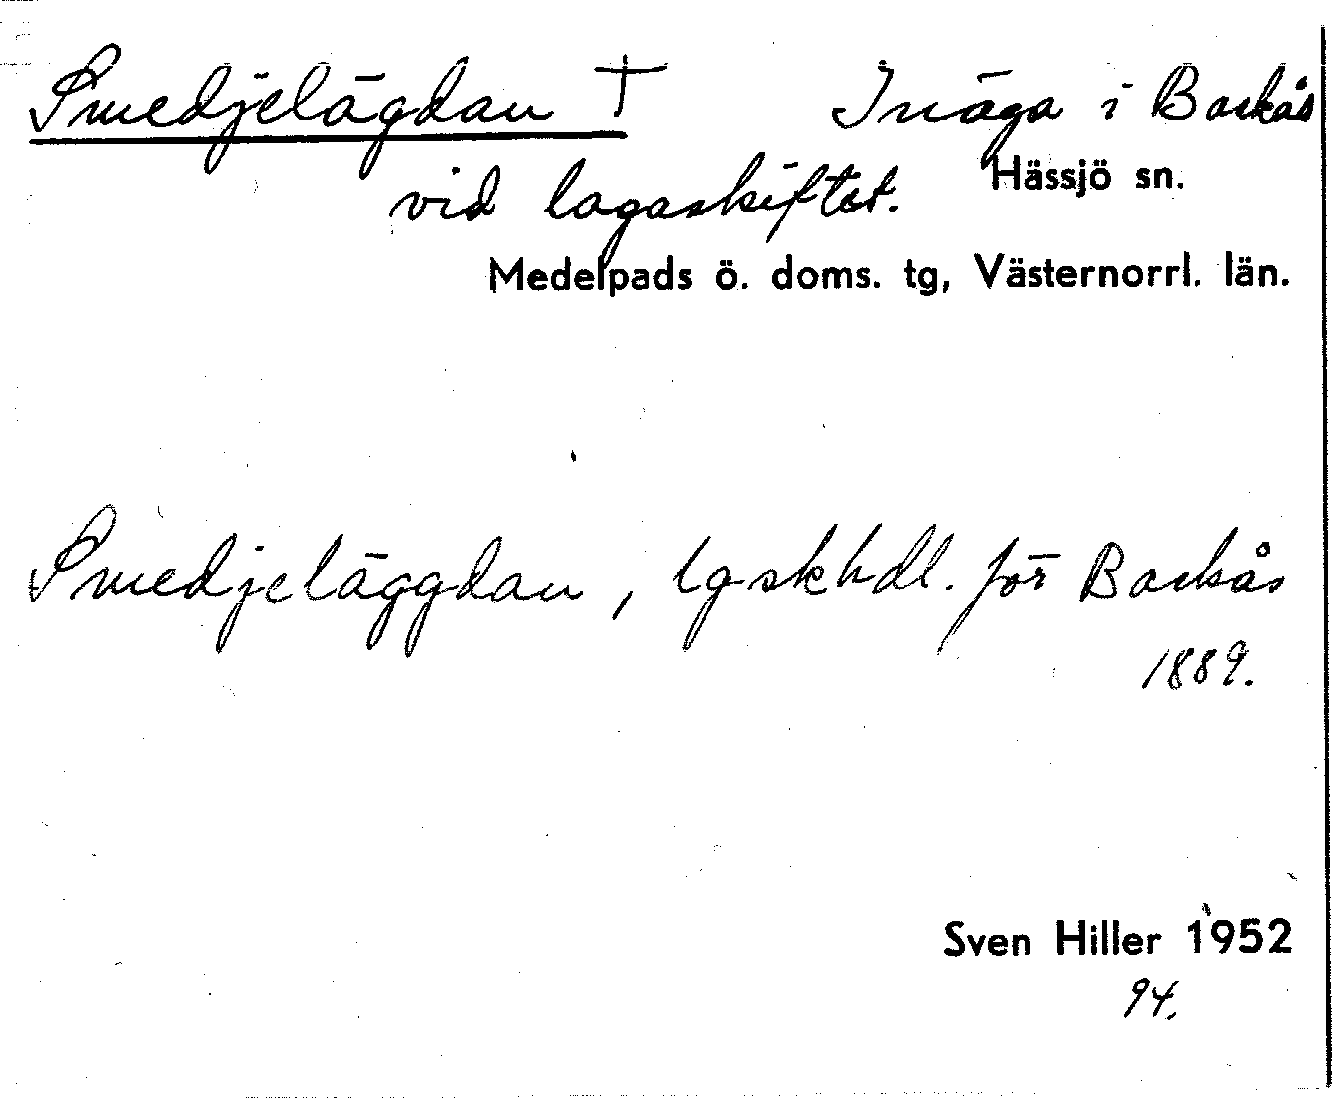 Smedjelägdan † Inäga i Backås
Hässjö sn.
vid lagaskiftet.
Medelpads ö. doms. tg, Västernorrl. län.
Smedjeläggdan, lgskhdl. för Backås
1889.
Sven Hiller 1952
94.